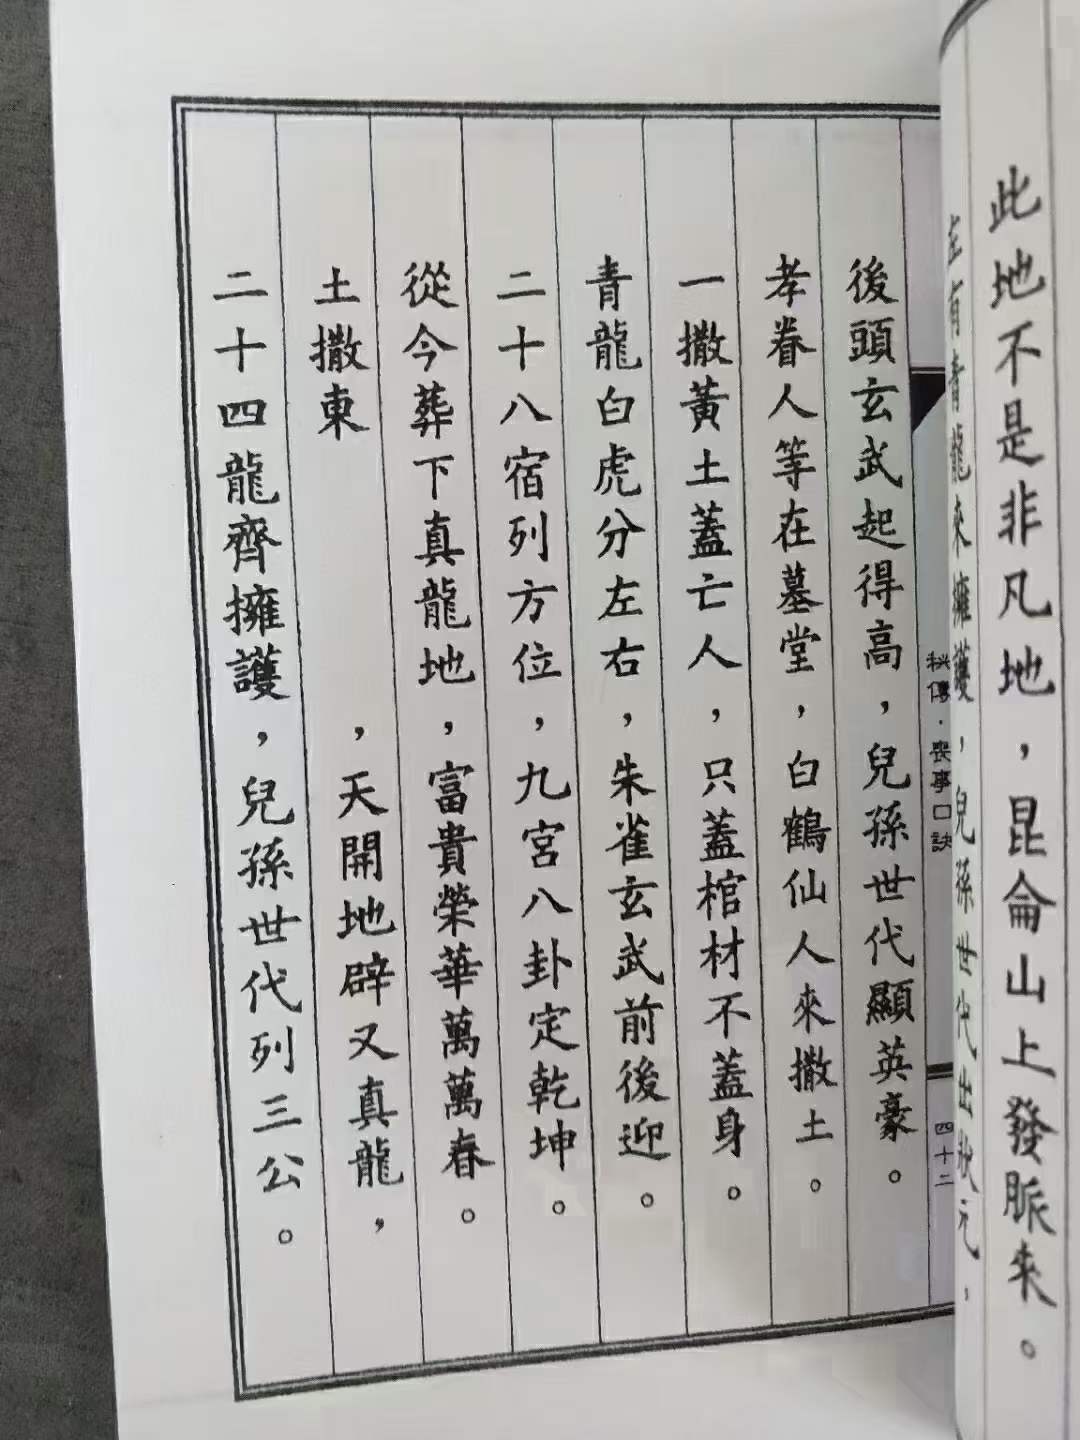 此地不是非凡地，昆侖山上發脈來。
左有青龍來擁護，兒孫世代出狀元，
秘傳·喪事口訣
四十二
後頭玄武起得高，兒孫世代顯英豪。
孝眷人等在墓堂，白鶴仙人來撒土。
一撒黃土蓋亡人，只蓋棺材不蓋身。
青龍白虎分左右，朱雀玄武前後迎。
二十八宿列方位，九宮八卦定乾坤。
從今葬下真龍地，富貴榮華萬萬春。
土撒東　　　，天開地辟又真龍，
二十四龍齊擁護，兒孫世代列三公。